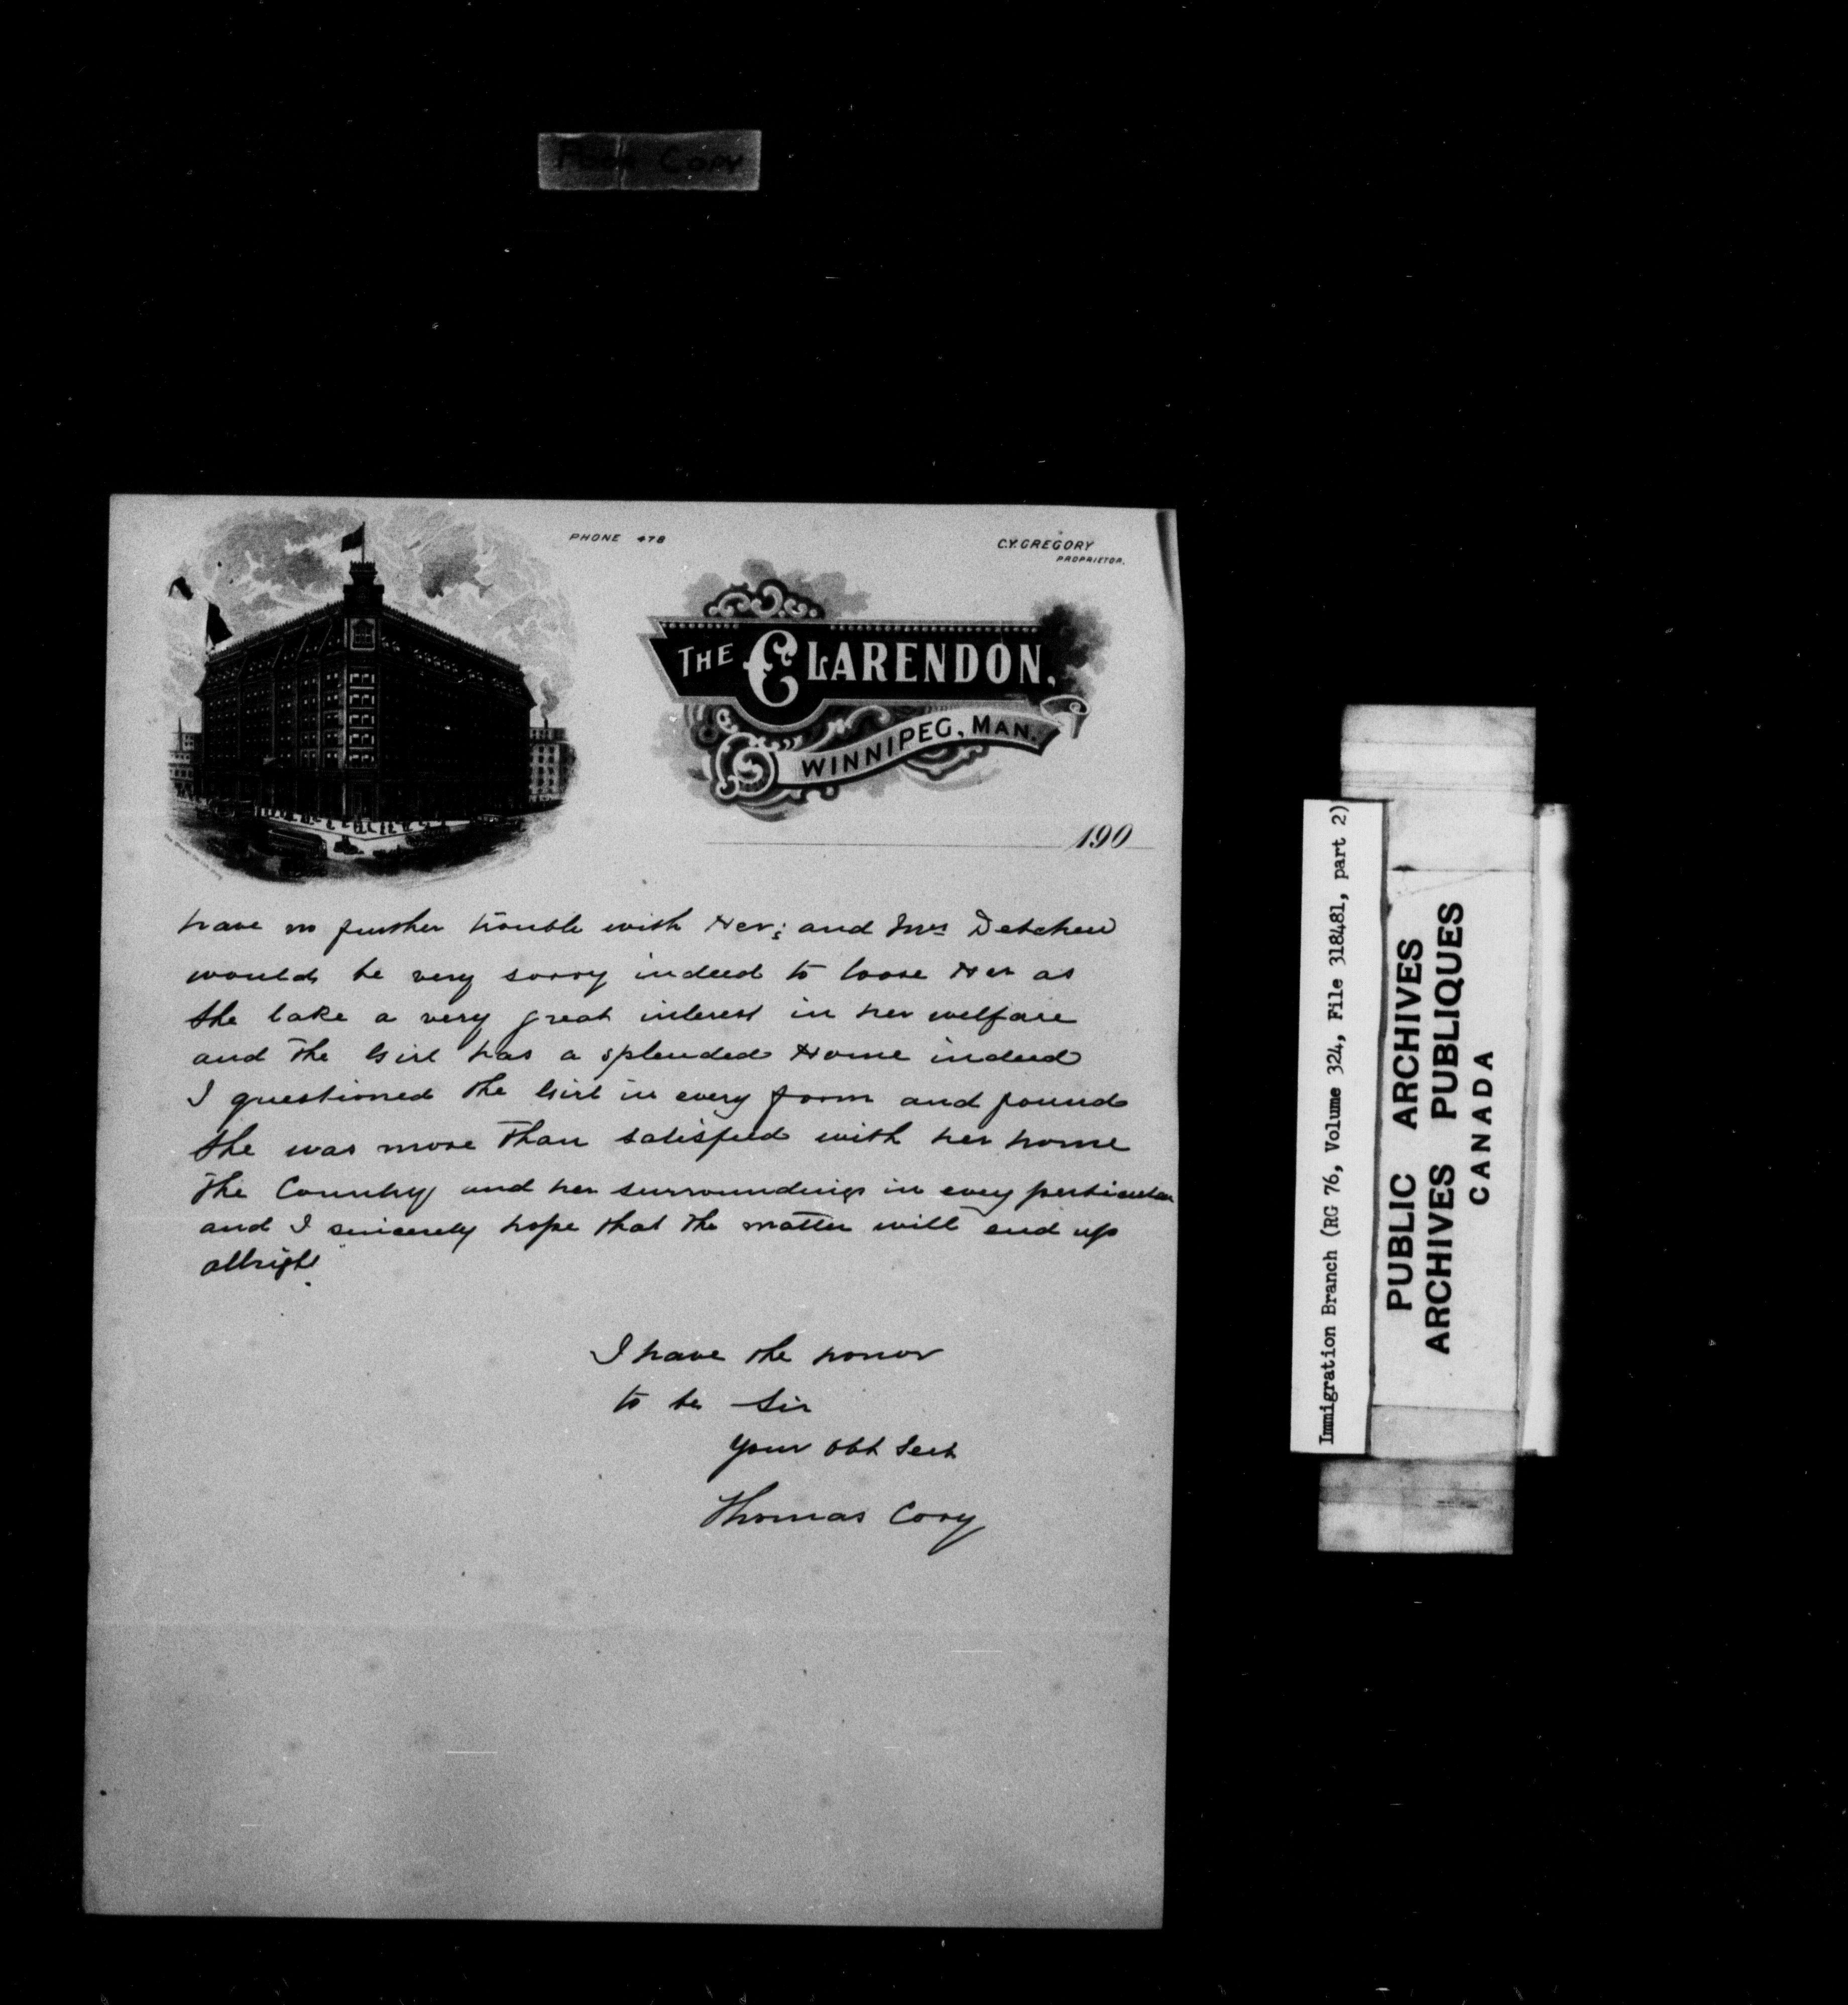 Poor Copy
PHONE 478
C.Y. GREGORY
PROPRIETOR.
THE CLARENDON,
WINNIPEG, MAN.
190
have no further trouble with Her; and Mrs Detchew
would be very sorry indeed to loose Her as
She take a very great interest in her welfare
and The Girl has a splended Home indeed
I questioned The Girl in every form and found
She was more Than satisfied with her home
The Country and her surroundings in every perticular
and I sincerely hope that The matter will end up
allright.
I have the honor
to be Sir
Your Obt Sert
Thomas Cory
Immigration Branch (RG 76, Volume 324, File 318481, part 2)
PUBLIC ARCHIVES
ARCHIVES PUBLIQUES
CANADA